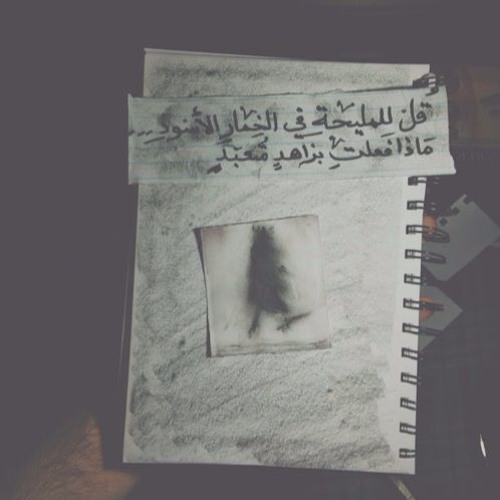 قل للمليحة في الخمار الأسود...
ماذا فعلت بزاهد متعبد